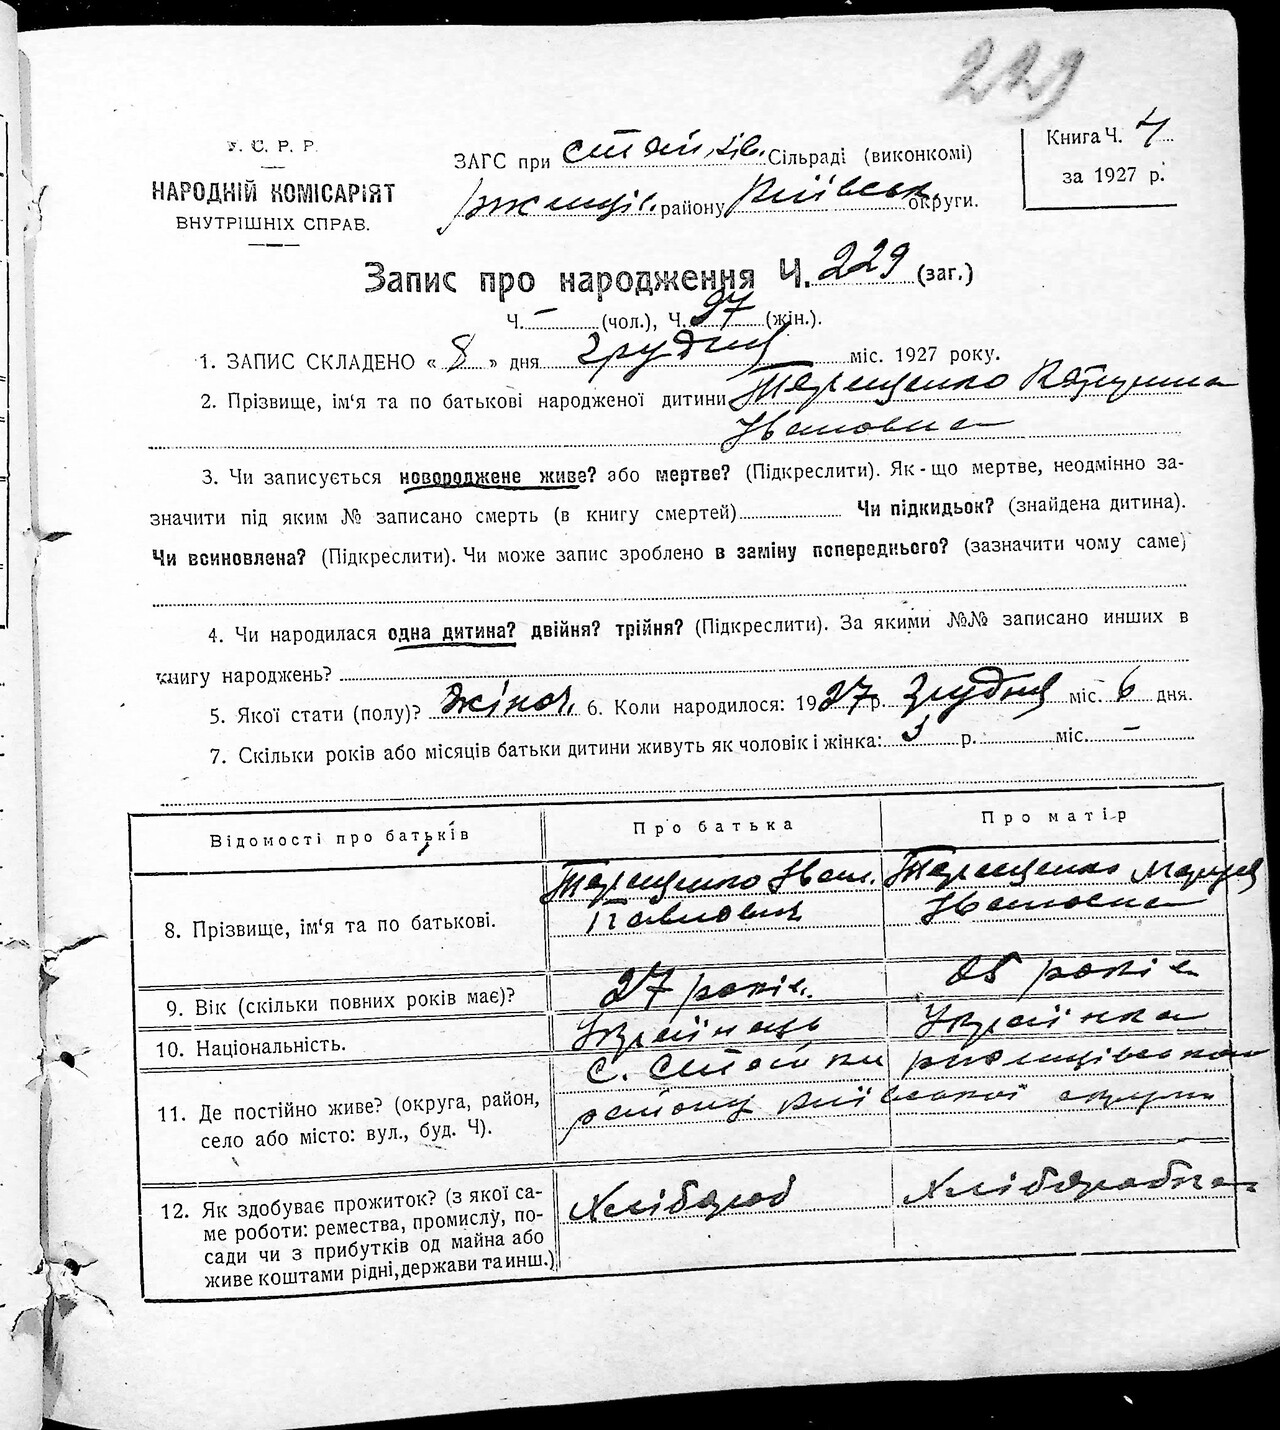 229
У. С. Р. Р.
НАРОДНІЙ КОМІСАРІЯТ
ВНУТРІШНІХ СПРАВ.
ЗАГС при Стайків. Сільраді (виконкомі)
Ржищів. району Київськ. округи.
Книга Ч. 4
за 1927 р.
Запис про народження Ч. 229 (заг.)
Ч. — (чол.), Ч. 97 (жін.).
1. ЗАПИС СКЛАДЕНО « 8 » дня грудня міс. 1927 року.
2. Прізвище, ім‘я та по батькові народженої дитини Терещенко Катерина
Івановна
3. Чи записується новороджене живе? або мертве? (Підкреслити). Як-що мертве, неодмінно за-
значити під яким № записано смерть (в книгу смертей) Чи підкидьок? (знайдена дитина).
Чи всиновлена? (Підкреслити). Чи може запис зроблено в заміну попереднього? (зазначити чому саме)
4. Чи народилася одна дитина? двійня? трійня? (Підкреслити). За якими №№ записано инших в
книгу народжень?
5. Якої стати (полу)? жіноч. 6. Коли народилося: 1927 р. грудня міс. 6 дня.
7. Скільки років або місяців батьки дитини живуть як чоловік і жінка: 5 р. міс. —
Відомості про батьків
Про батька
Про матір
8. Прізвище, ім‘я та по батькові.
Терещенко Іван
Павлович
Терещенко Мария
Івановна
9. Вік (скільки повних років має)?
27 років.
25 років
10. Національність.
Українець
Українка
11. Де постійно живе? (округа, район,
село або місто: вул., буд. Ч).
С. Стайки Ржищівського
району Київської округи
12. Як здобуває прожиток? (з якої са-
ме роботи: ремества, промислу, по-
сади чи з прибутків од майна або
живе коштами рідні, держави та инш.)
Хлібороб
Хліборобка